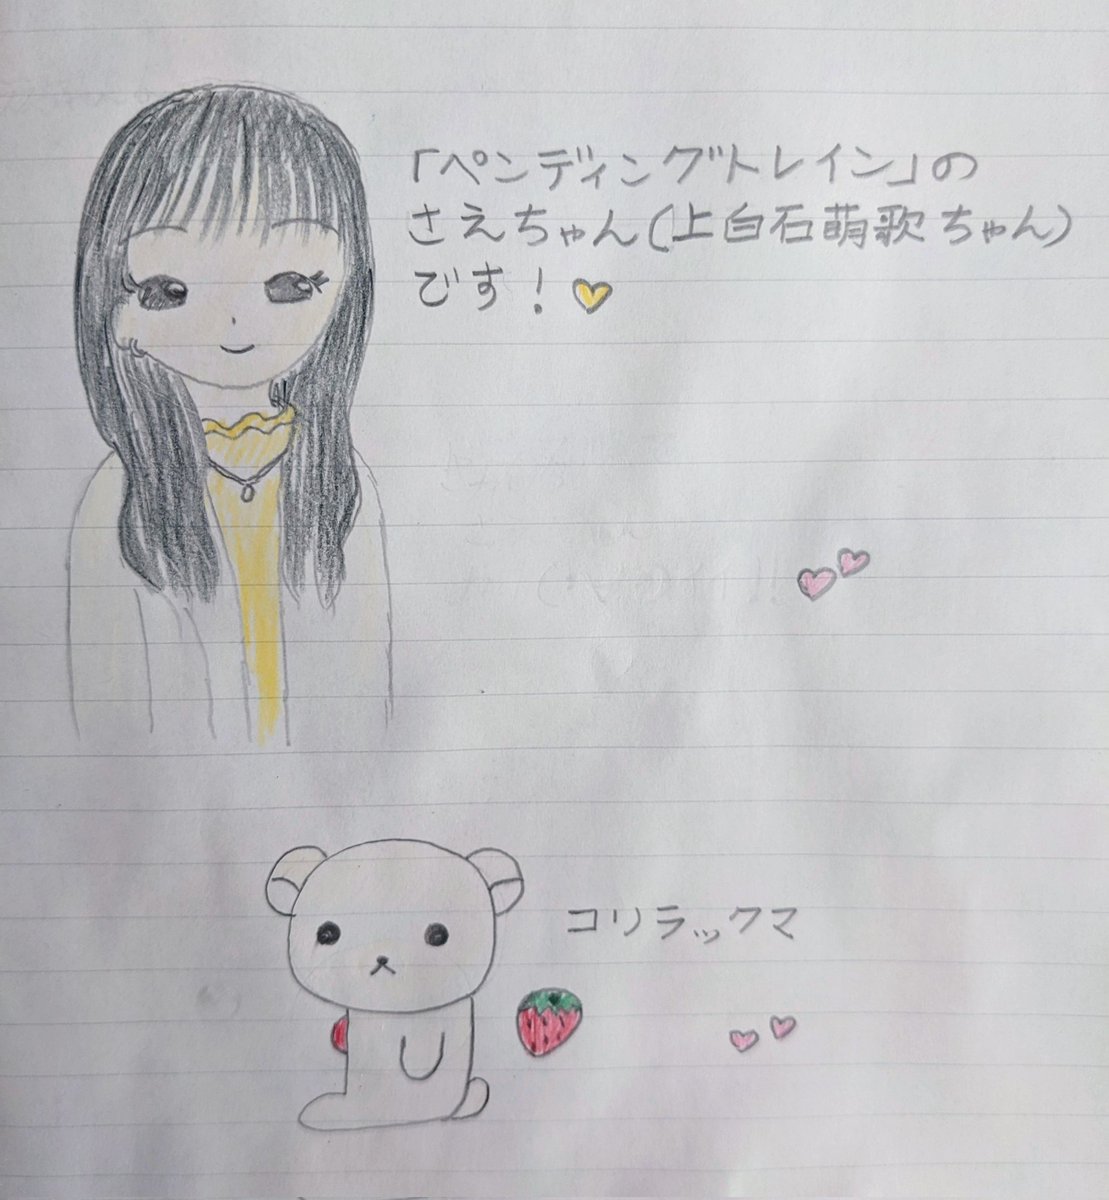 「ペンディングトレイン」の
さえちゃん(上白石萌歌ちゃん)
です!
コリラックマ